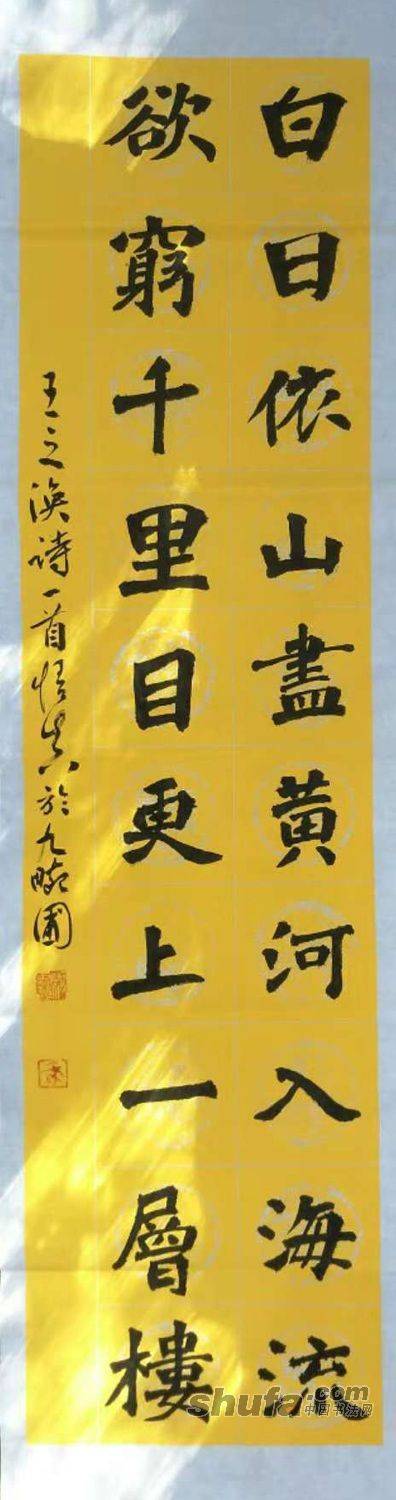 白日依山盡黄河入海流
欲窮千里目更上一層樓
王之渙诗一首悟真於九畹圃
shufa.com
中国书法网